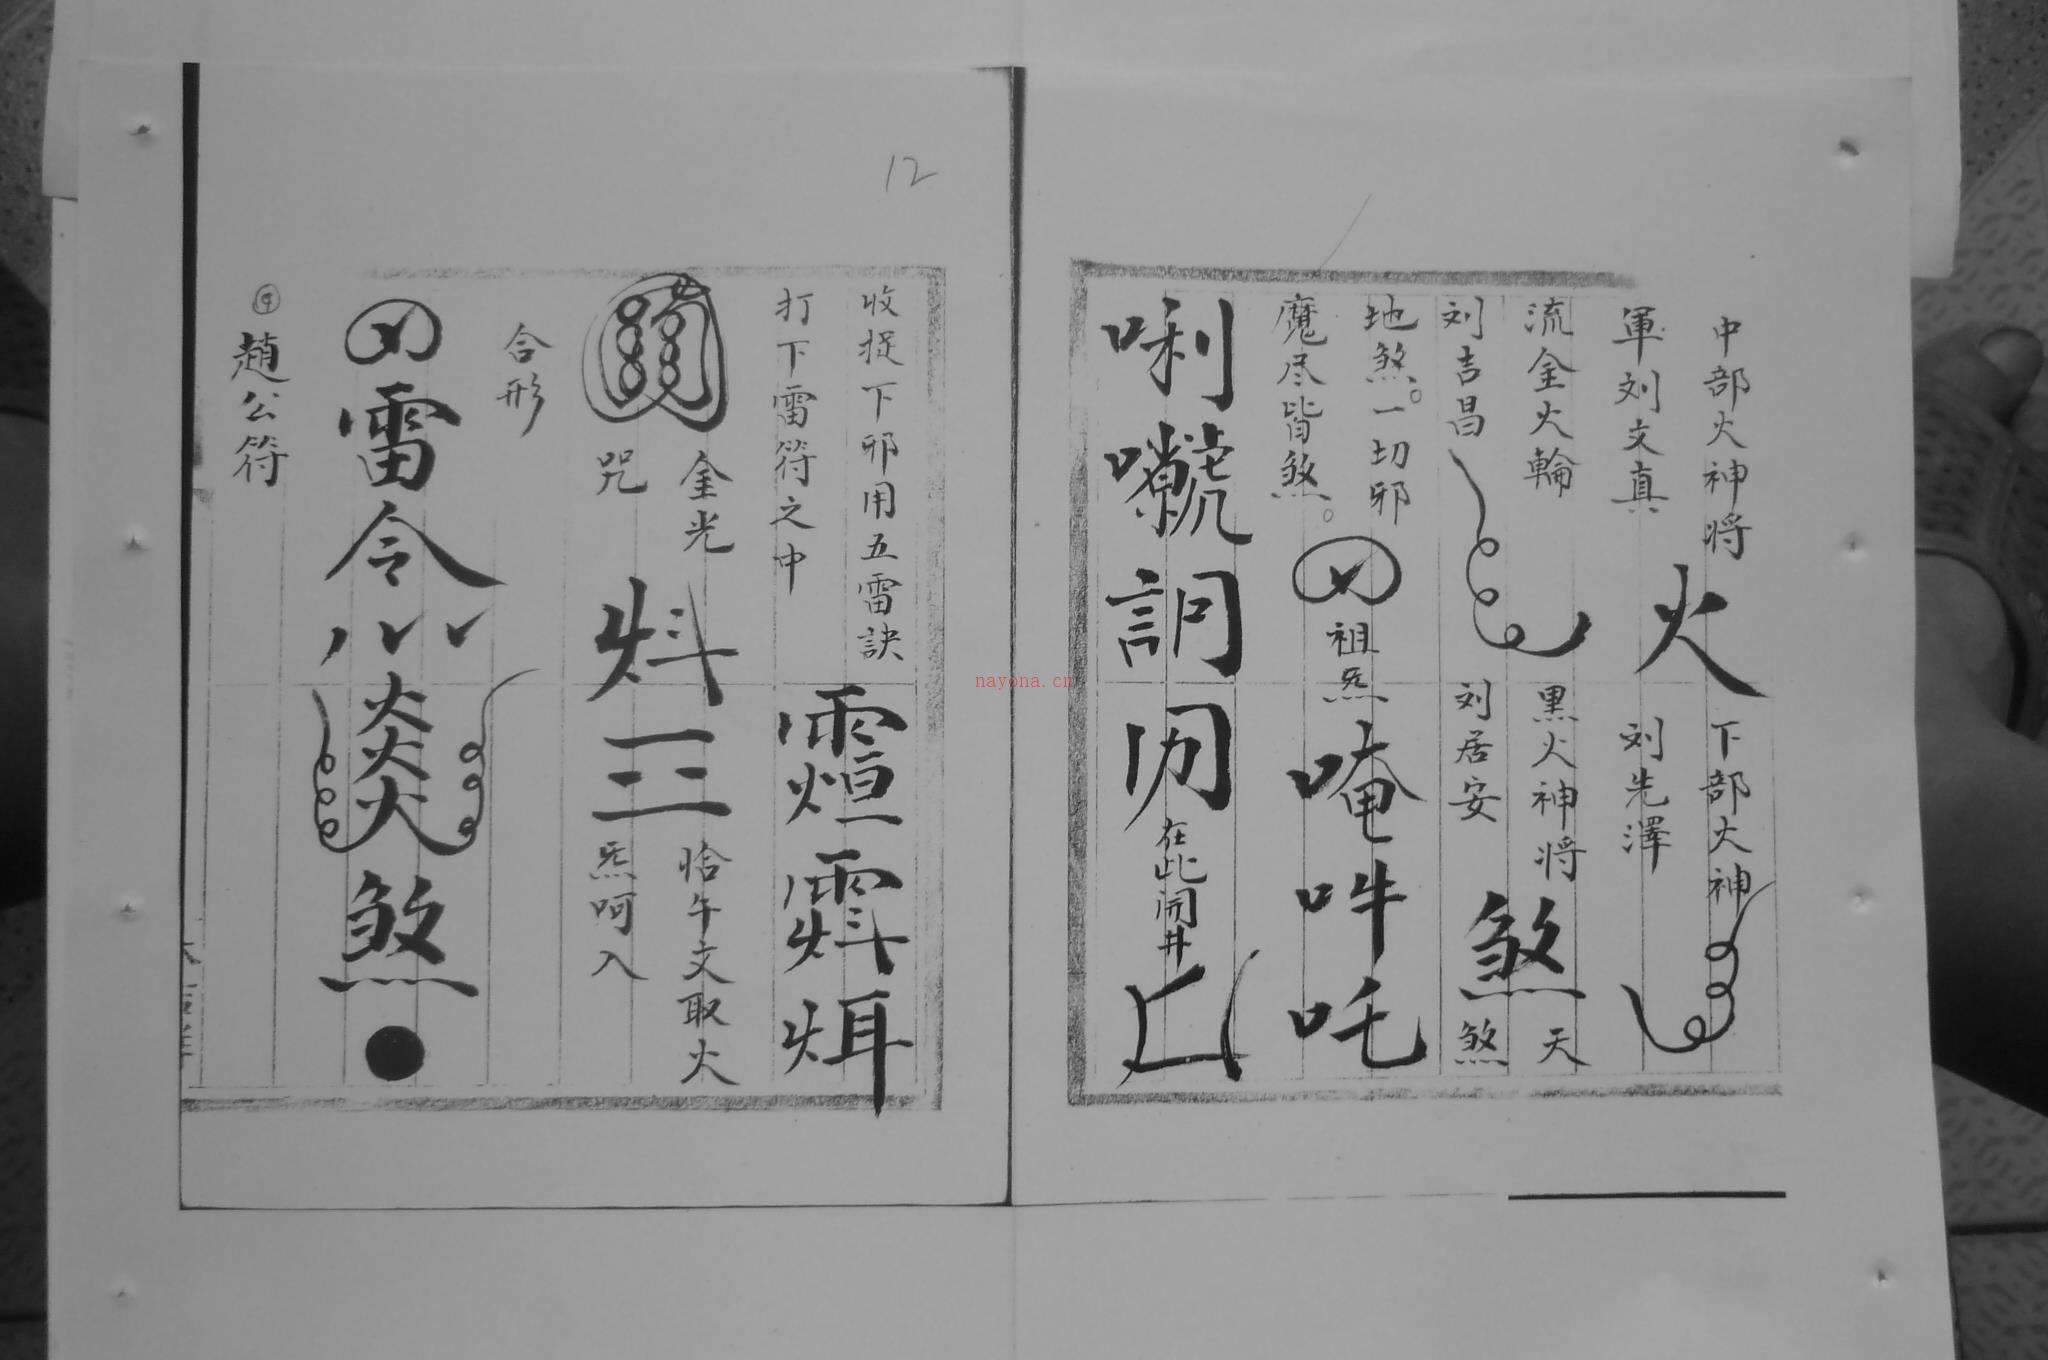 中部火神将
軍刘文真
火
下部火神
刘先澤
流金火輪
刘吉昌
黒火神将
刘居安
煞
天
煞
地煞。一切邪
魔尽皆煞。
祖炁
唵吽吒
唎
在此開井
12
收捉下邪用五雷訣
打下雷符之中
金光
咒
炓三
恰午文取火
炁呵入
合形
雷令
煞
④趙公符
nayona.cn